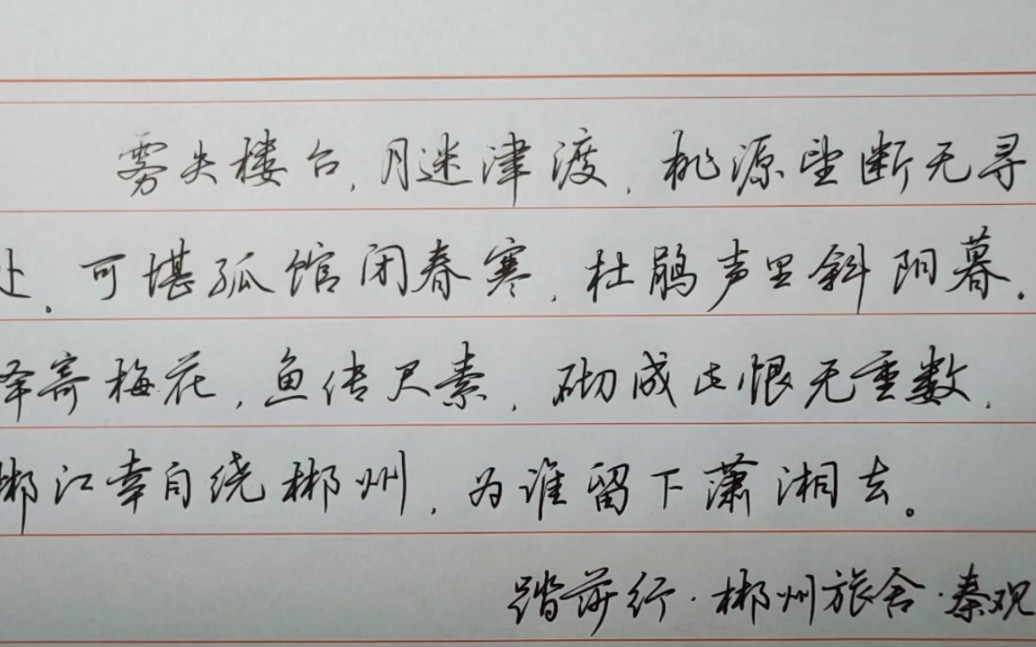 雾失楼台,月迷津渡,桃源望断无寻
处。可堪孤馆闭春寒,杜鹃声里斜阳暮。
驿寄梅花,鱼传尺素,砌成此恨无重数,
郴江幸自绕郴州,为谁留下潇湘去。
踏莎行·郴州旅舍·秦观